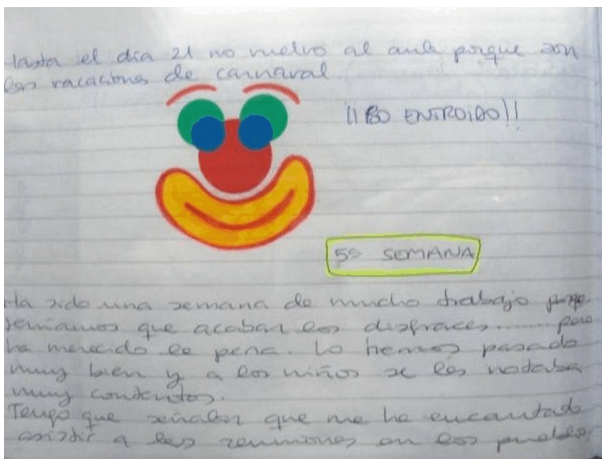 Hasta el día 21 no vuelvo al aula porque son
las vacaciones de carnaval
¡¡BO ENTROIDO!!
5ª SEMANA
Ha sido una semana de mucho trabajo porque
teníamos que acabar los disfraces...... pero
ha merecido la pena. Lo hemos pasado
muy bien y a los niños se les notaba
muy contentos.
Tengo que señalar que me ha encantado
asistir a las reuniones en los pueblos,